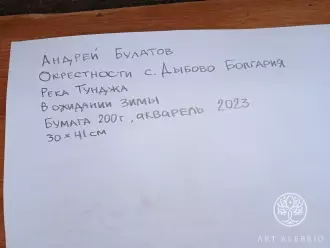 Андрей Булатов
Окрестности с. Дыбово Болгария
Река Тунджа
В ожидании зимы
Бумага 200г, акварель 2023
30 × 41 см
ART ALEBRIO